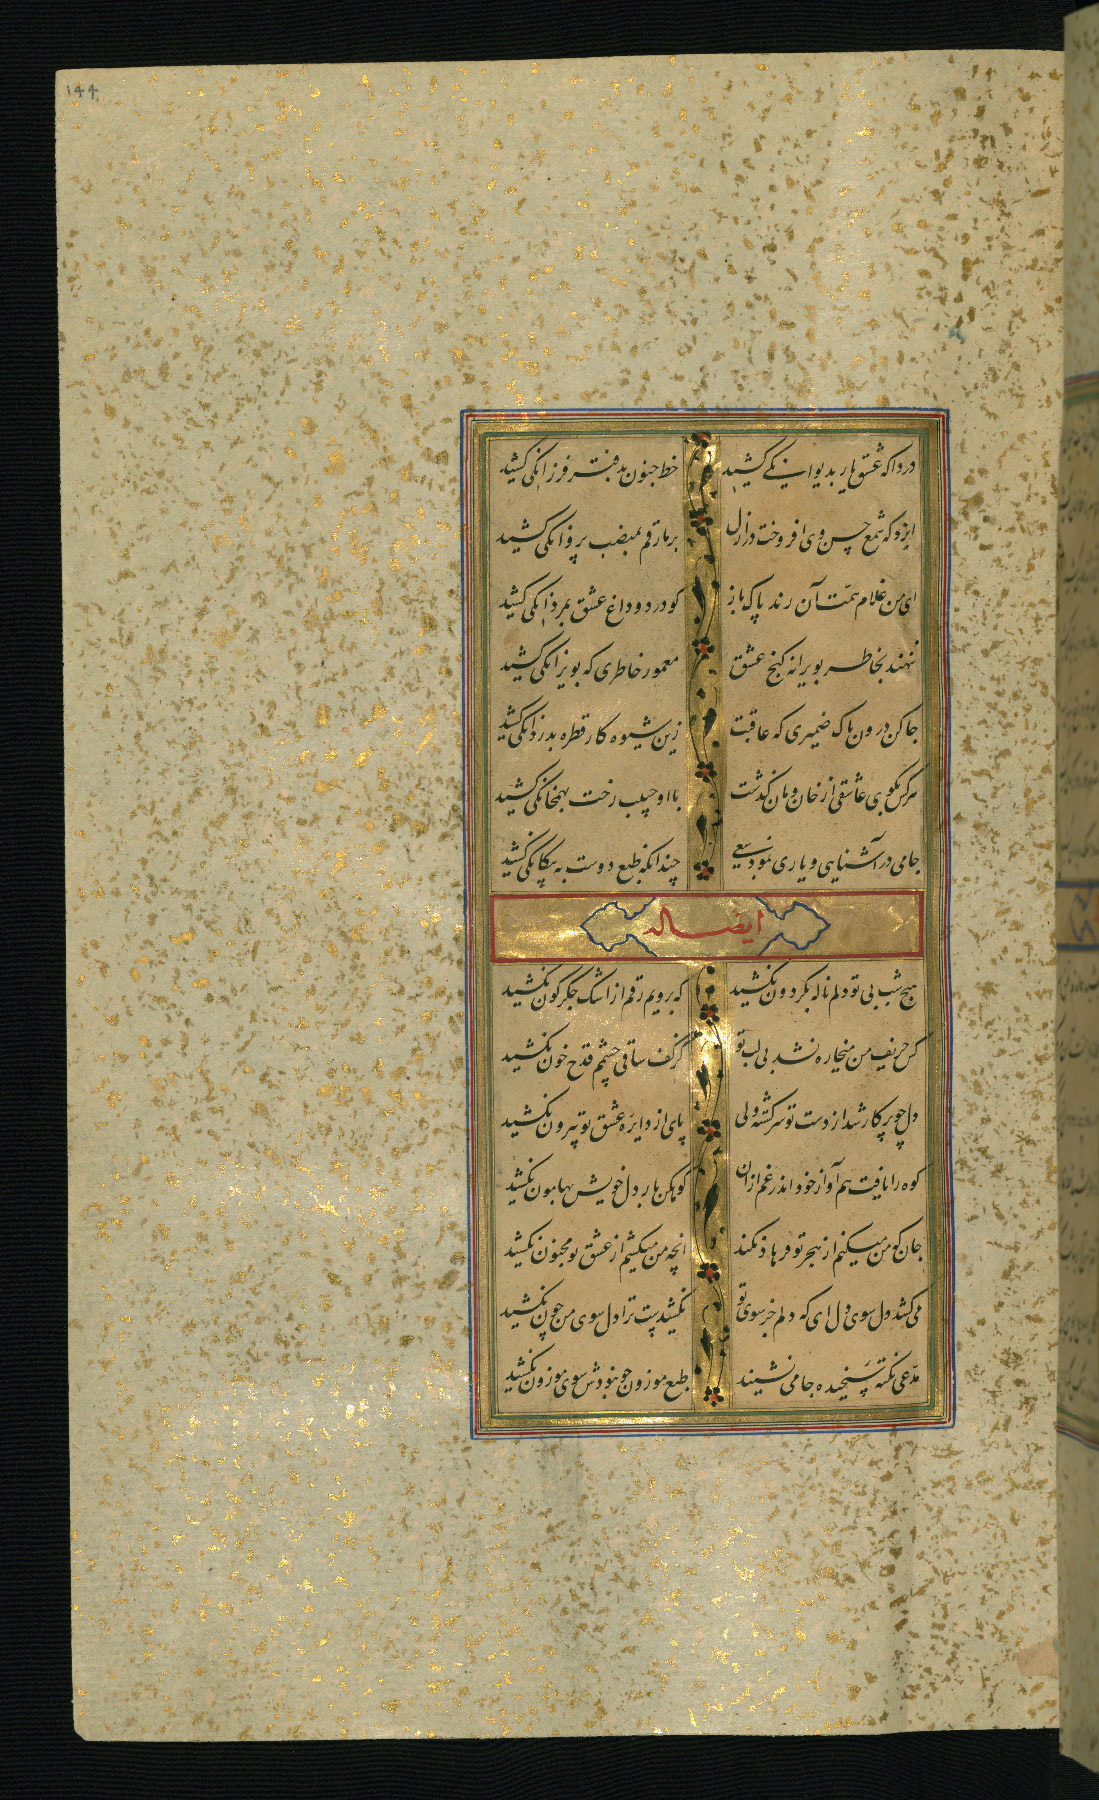 ۱۴۴
دردا که عشق یار بدیوانگی کشید خط جنون بدفتر فرزانگی کشید
ایزد که شمع حسن وی افروخت در ازل بر ما رقم بمنصب پروانگی کشید
ای من غلام همت آن رند پاک باز کو درد و داغ عشق بمردانگی کشید
ننهند بخاطر بویرانه کنج عشق معمور خاطری که بویرانگی کشید
جا کن درون پاک ضمیری که عاقبت زین شیوه کار قطره بدردانگی کشید
هر کس بکوی عاشقی از خان و مان گذشت با او حبیب رخت بهمخانگی کشید
جامی در آشنایی و یاری نمود سعی چندانکه طبع دوست به بیگانگی کشید
ایضا له
هیچ شب بی تو دلم ناله بگردون نکشید که برویم رقم از اشک جگرگون نکشید
کس حریف من میخاره نشد بی لب تو کز کف ساقی چشم قدح خون نکشید
دل چو پرکار شد از دست تو سرگشته ولی پای از دایره عشق تو بیرون نکشید
کوه را یافت هم آواز خود اندر غم ازان کوهکن بار دل خویش بهامون نکشید
جان کنی من میکنم از هجر تو فرهاد نکند انچه من میکشم از عشق تو مجنون نکشید
می کشد دل سوی دل ای که دلم جز سوی تو نکشیدست ترا دل سوی من چون نکشید
مدعی نکته سنجیده جامی نشنید طبع موزون چو نبودش سوی موزون نکشید